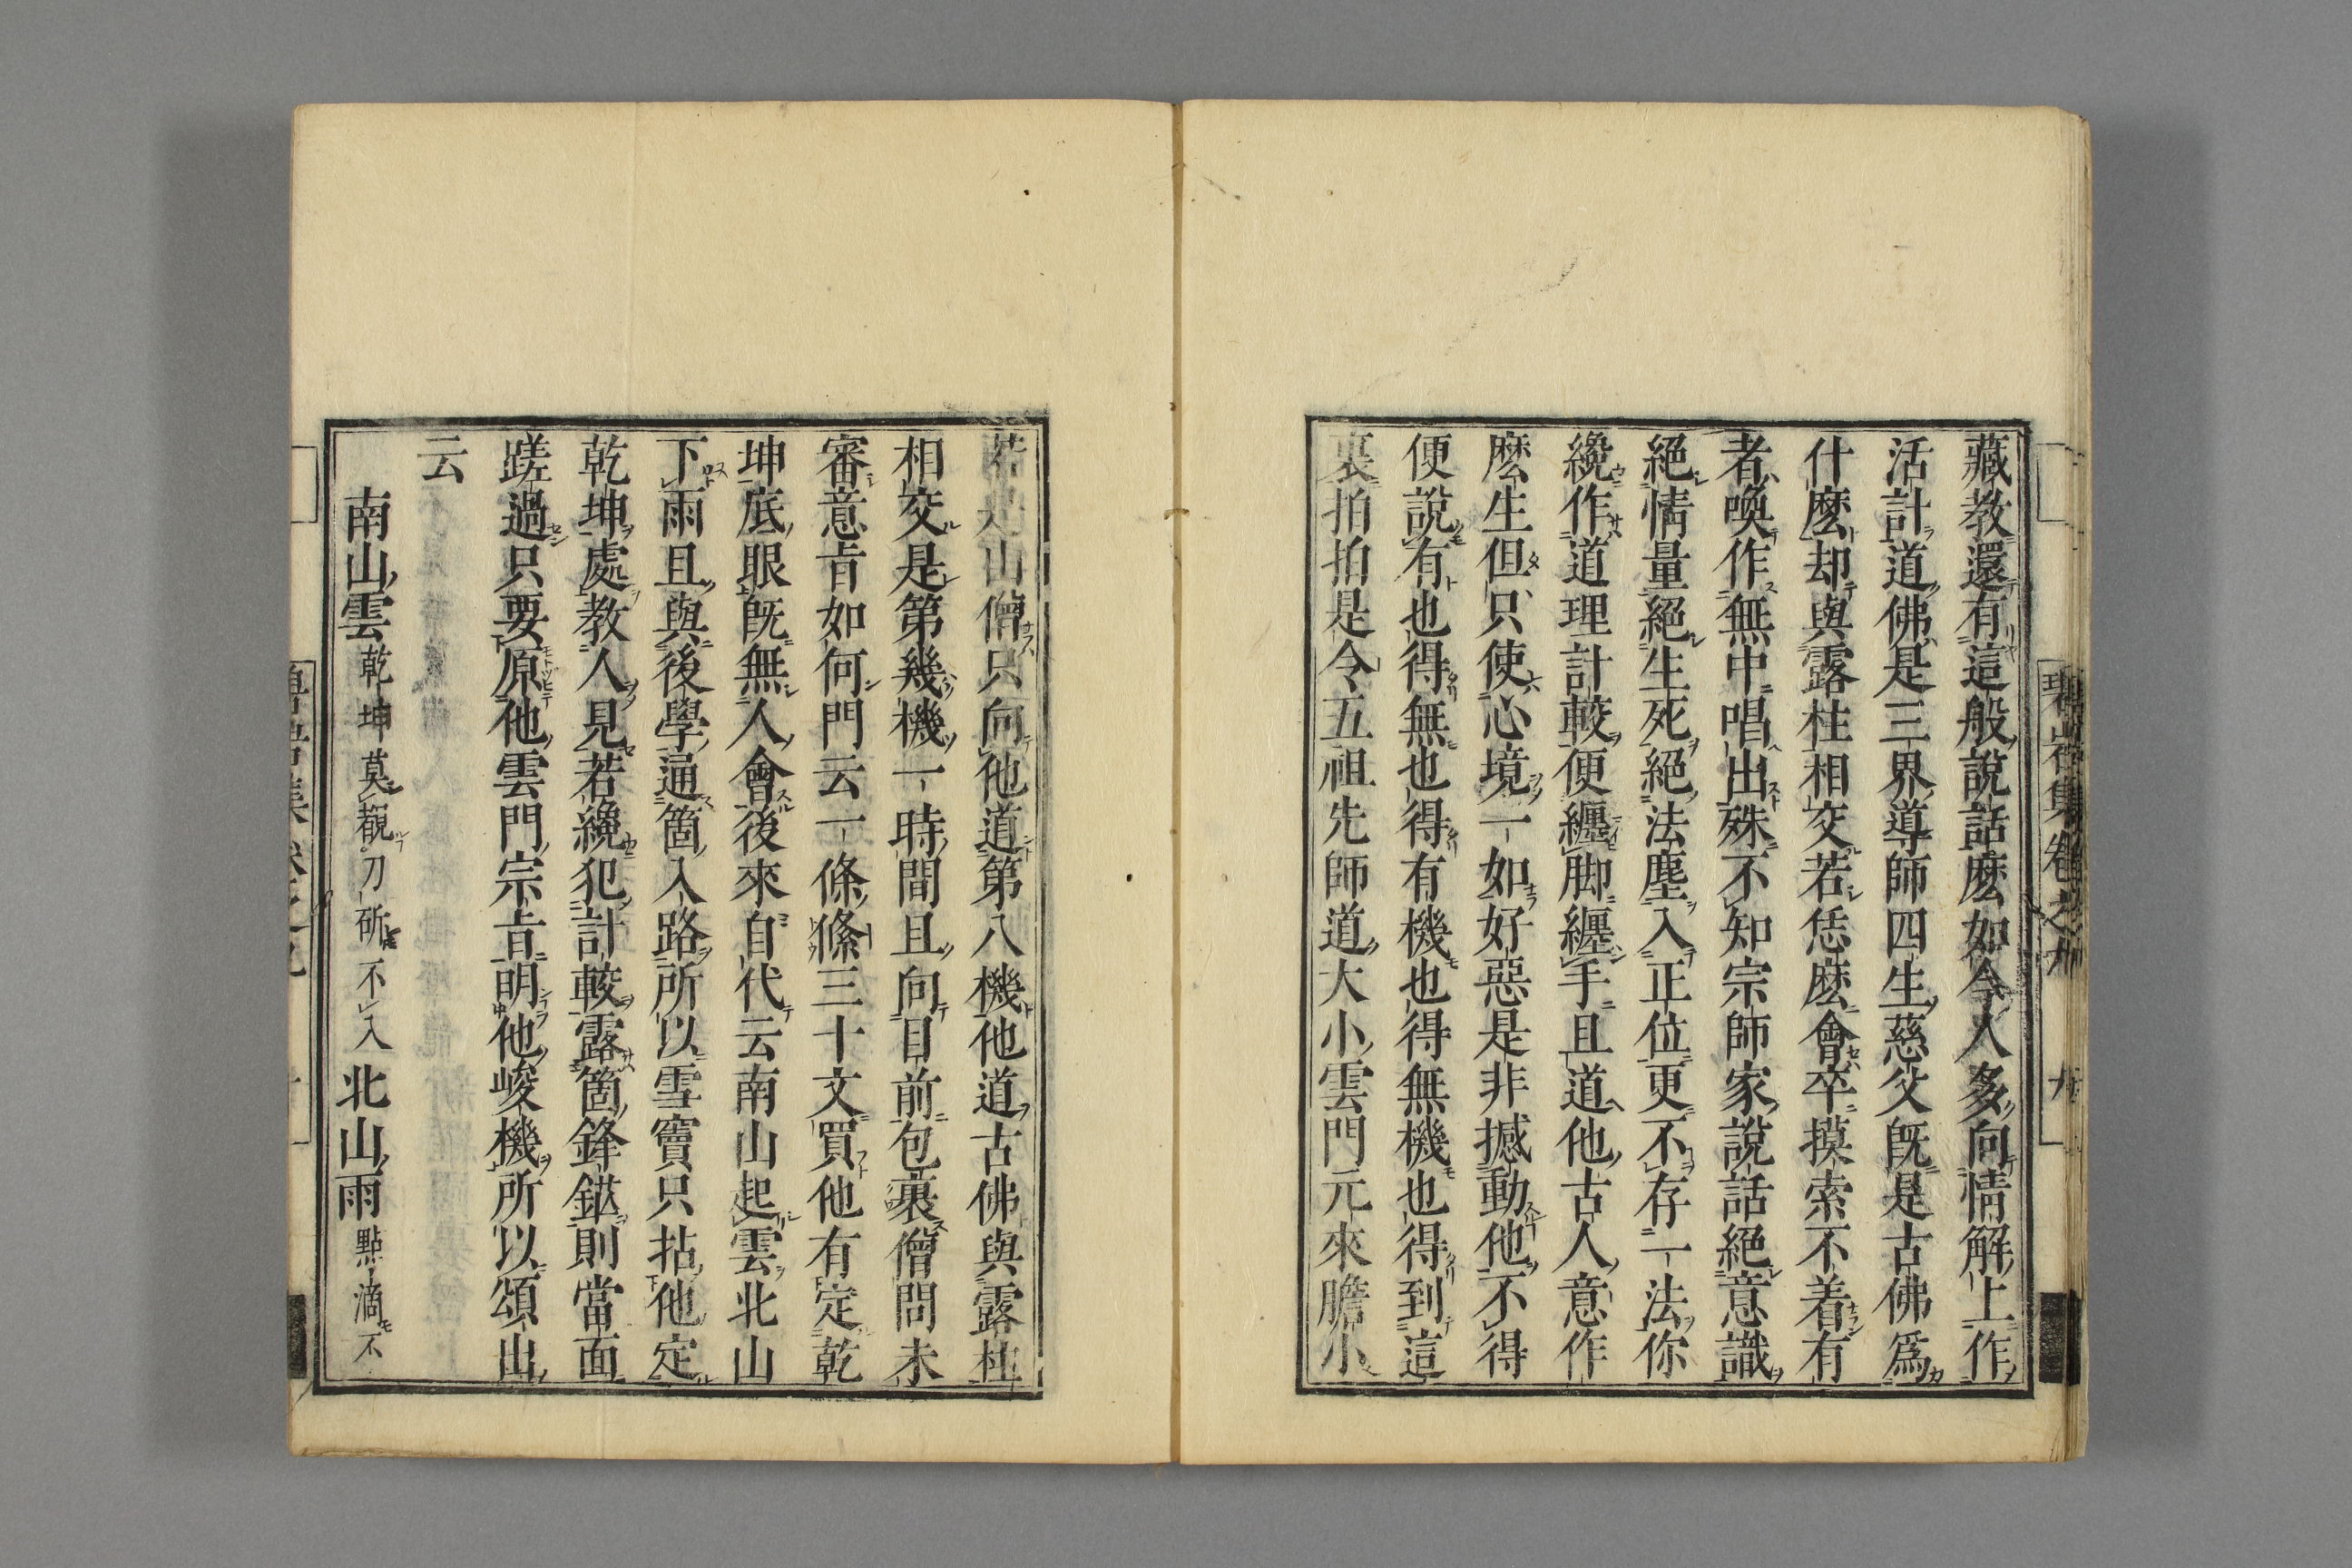 藏教還有這般說話麽如今人多向情解上作
活計道佛是三界導師四生慈父既是古佛爲
什麽却與露柱相交若恁麽會卒摸索不着有
者喚作無中唱出殊不知宗師家說話絕意識
絕情量絕生死絕法塵入正位更不存一法你
纔作道理計較便纏脚纏手且道他古人意作
麽生但只使心境一如好惡是非撼動他不得
便說有也得無也得有機也得無機也得到這
裏拍拍是令五祖先師道大小雲門元來膽小
若是山僧只向他道第八機他道古佛與露柱
相交是第幾機一時間且向目前包裹僧問未
審意旨如何門云一條絛三十文買他有定乾
坤底眼既無人會後來自代云南山起雲北山
下雨且與後學通箇入路所以雪竇只拈他定
乾坤處教人見若纔犯計較露箇鋒鋩則當面
蹉過只要原他雲門宗旨明他峻機所以頌出
云
南山雲乾坤莫覩刀斫不入北山雨點滴不
碧巖集卷之九 九